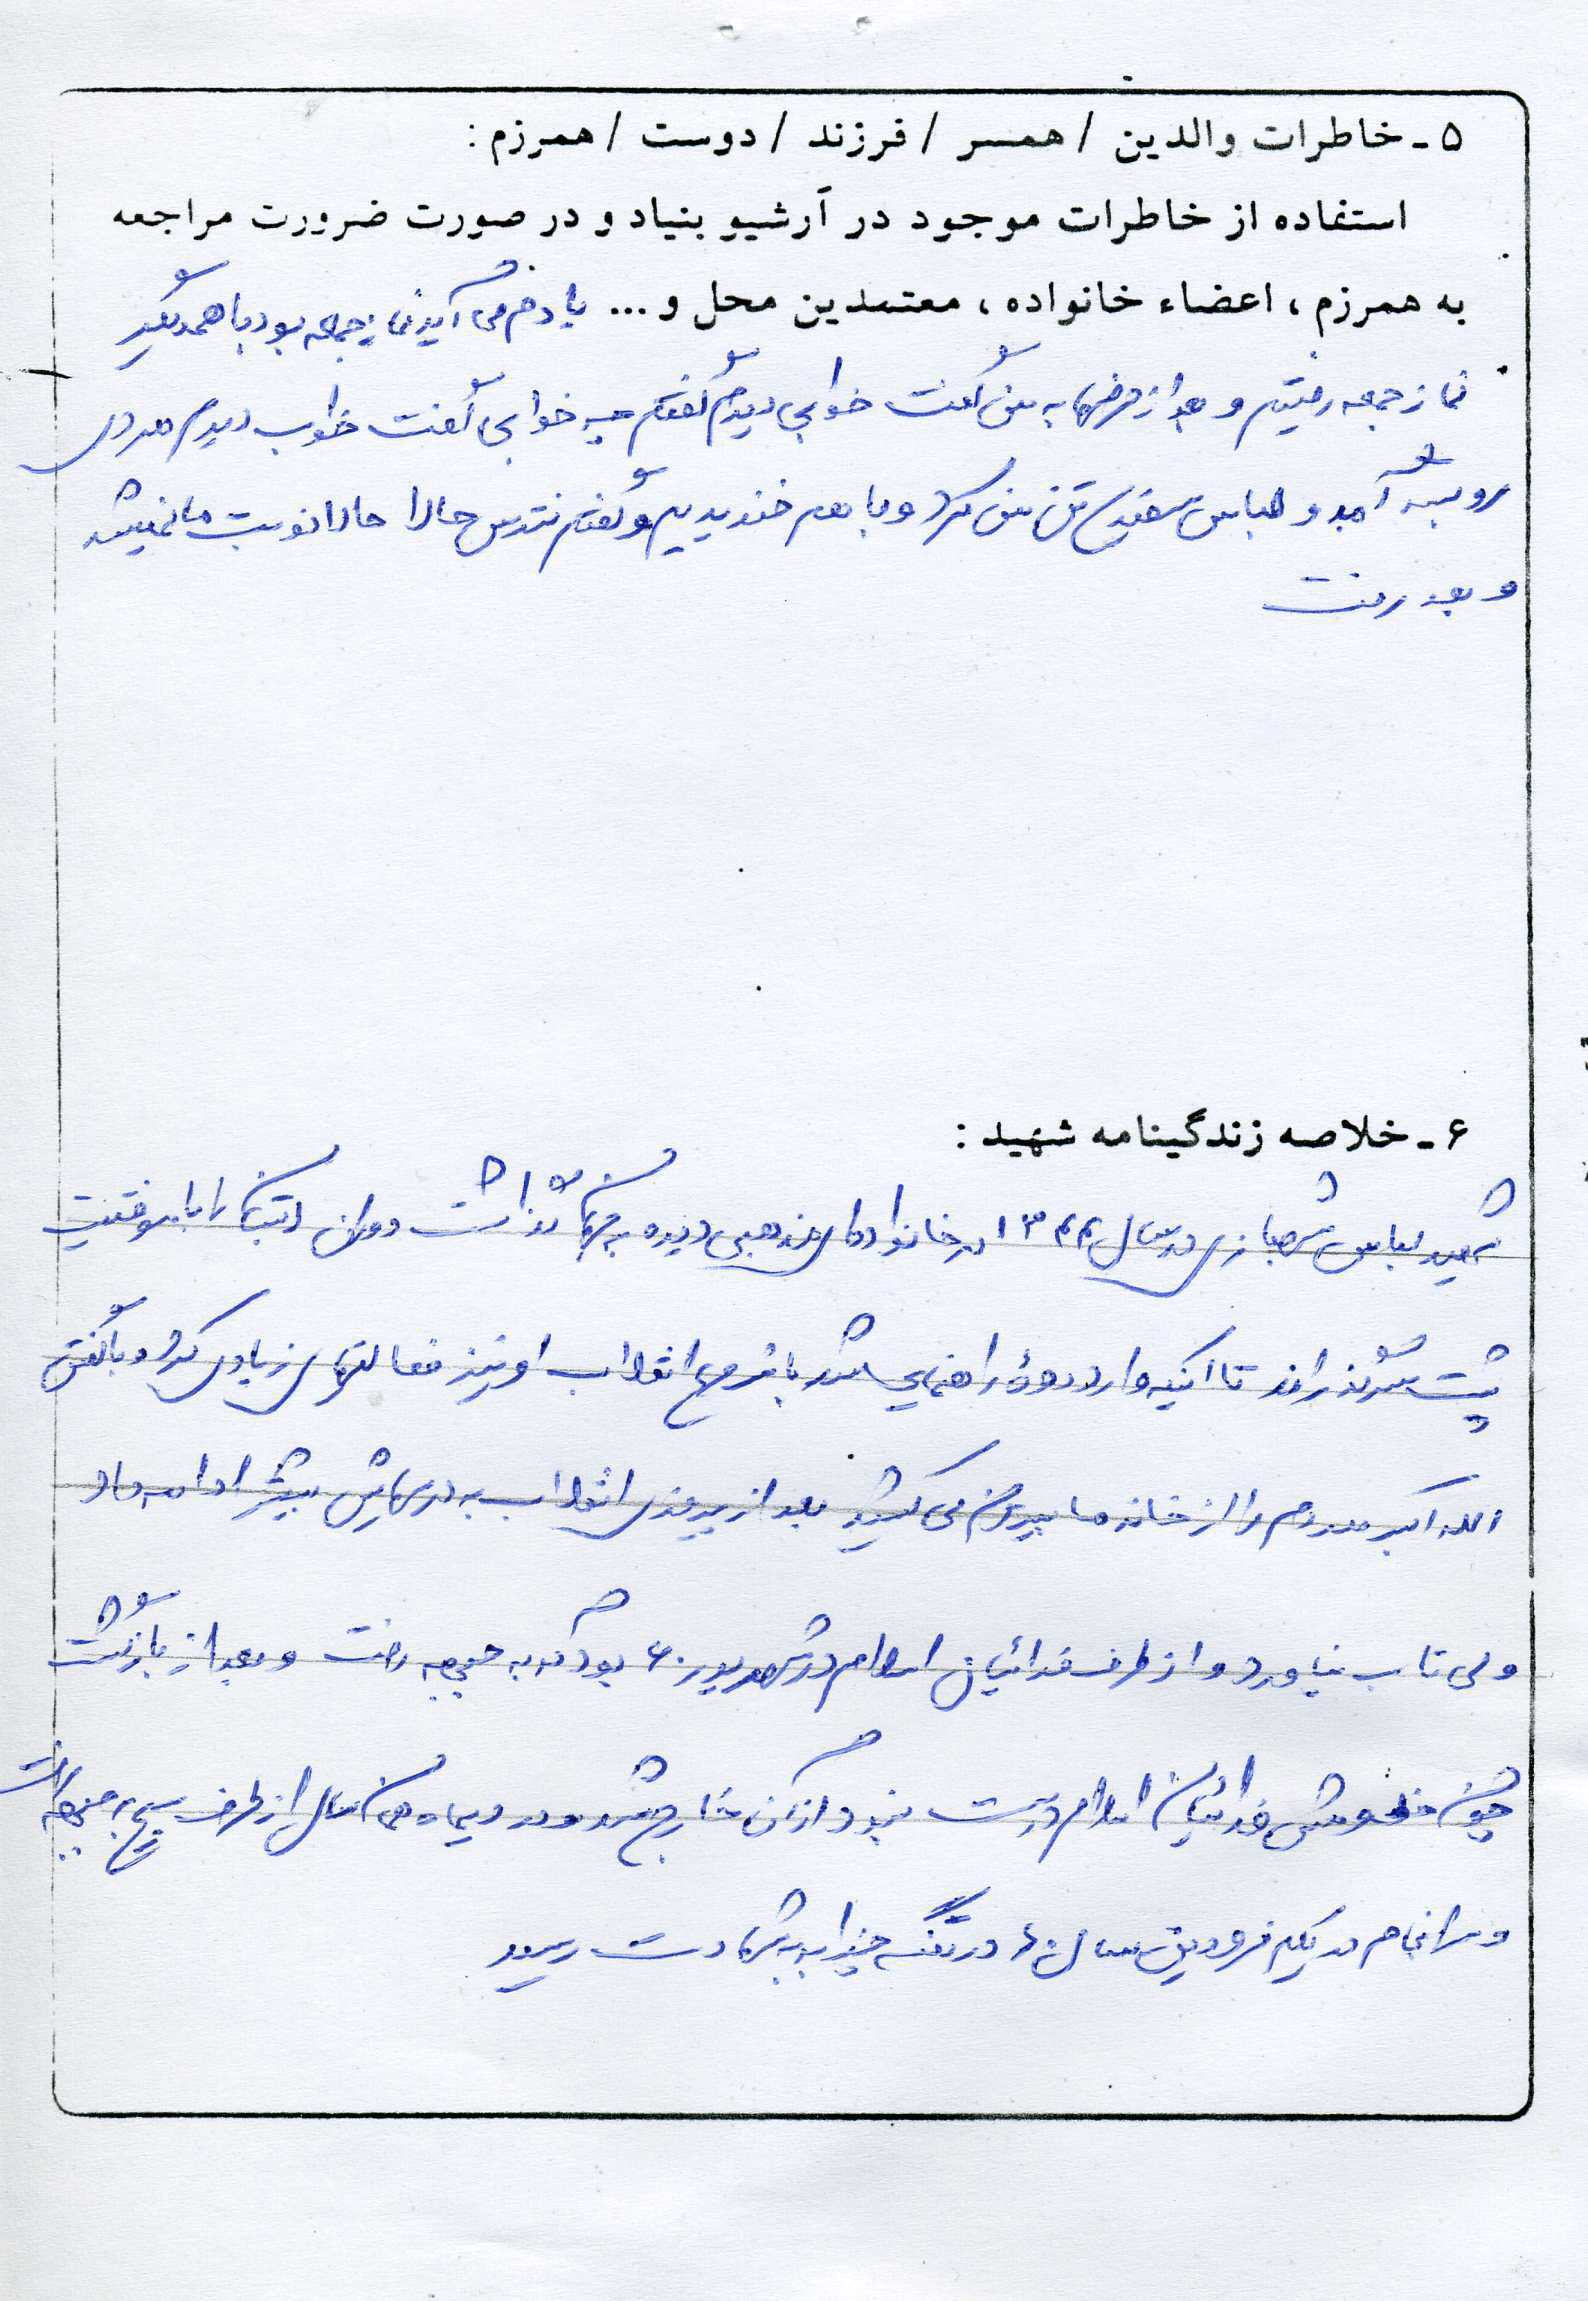 ۵ ـ خاطرات والدین / همسر / فرزند / دوست / همرزم :
استفاده از خاطرات موجود در آرشیو بنیاد و در صورت ضرورت مراجعه
به همرزم ، اعضاء خانواده ، معتمدین محل و ... یادم می آید نماز جمعه بود با همدیگر
نماز جمعه رفتیم و بعد از به من گفت خوابی دیدم گفتم چه خوابی گفت خواب دیدم مردی
آمد و لباس سفیدی تن من کرد و با هم خندیدیم و گفتم نترس حالا حالا نوبت ما نمیشه
و بعد رفت
۶ ـ خلاصه زندگینامه شهید :
شهید عباس شهبازی در سال ۱۳۴۴ در خانواده‌ای مذهبی دیده به جهان گذاشت دوران ابتدائی را با موفقیت
پشت سر گذراند تا اینکه وارد دورۀ راهنمایی شد با شروع انقلاب او نیز فعالیتهای زیادی کرد و با گفتن
الله اکبر مردم را از خانه ها بیرون می کشید بعد از پیروزی انقلاب به درسهایش بیشتر ادامه داد
ولی تاب نیاورد و از طرف فدائیان اسلام در شهریور ۶۰ بود که به جبهه رفت و بعد از بازگشت
چون خط و مشی فدائیان اسلام درست نبود از آن خارج شد و در دیماه همان سال از طرف بسیج به جبهه رفت
و سرانجام در یکم فروردین سال ۶۱ در تنگه چزابه به شهادت رسید